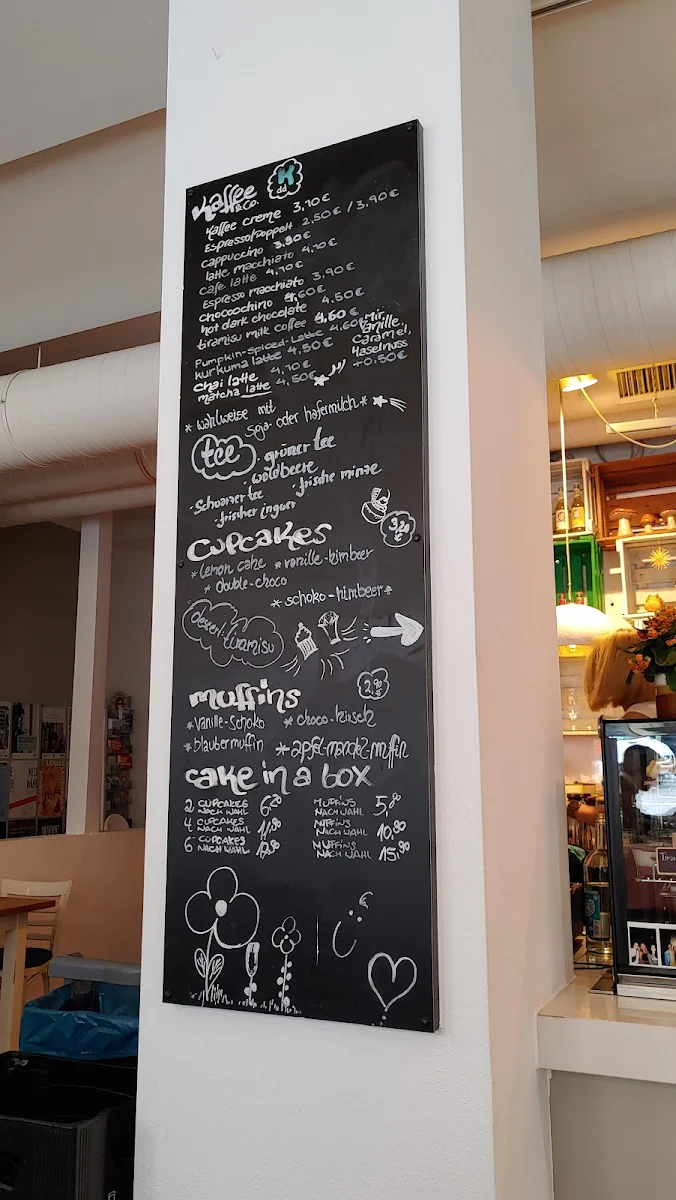 Kaffee & Co.
K dd
Kaffee creme 3,10€
Espresso/doppelt 2,50€ / 3,90€
cappuccino 3,90€
latte macchiato 4,10€
cafe latte 4,10€
Espresso macchiato 3,90€
chocochino 4,60€
hot dark chocolate 4,50€
tiramisu milk coffee 4,60€
Pumpkin-Spiced-Latte 4,60€
kurkuma latte 4,50€
Chai latte 4,10€
matcha latte 4,50€
Mit
Vanille,
Caramel,
Haselnuss
+0,50€
* wahlweise mit
soja- oder hafermilch *
tee
grüner tee
· waldbeere
· Schwarzer tee · frische minze
· frischer ingwer
cupcakes
3,20
€
* lemon cake * vanille-himbeer
* double-choco
* schoko-himbeer *
tiramisu
muffins
2,90
€
* vanille-schoko * choco-kirsch
* blaubermuffin * apfel-mandel-muffin
cake in a box
2 CUPCAKES NACH WAHL 6,20
MUFFINS NACH WAHL 5,80
4 CUPCAKES NACH WAHL 11,90
MUFFINS NACH WAHL 10,90
6 CUPCAKES NACH WAHL
MUFFINS NACH WAHL 15,90